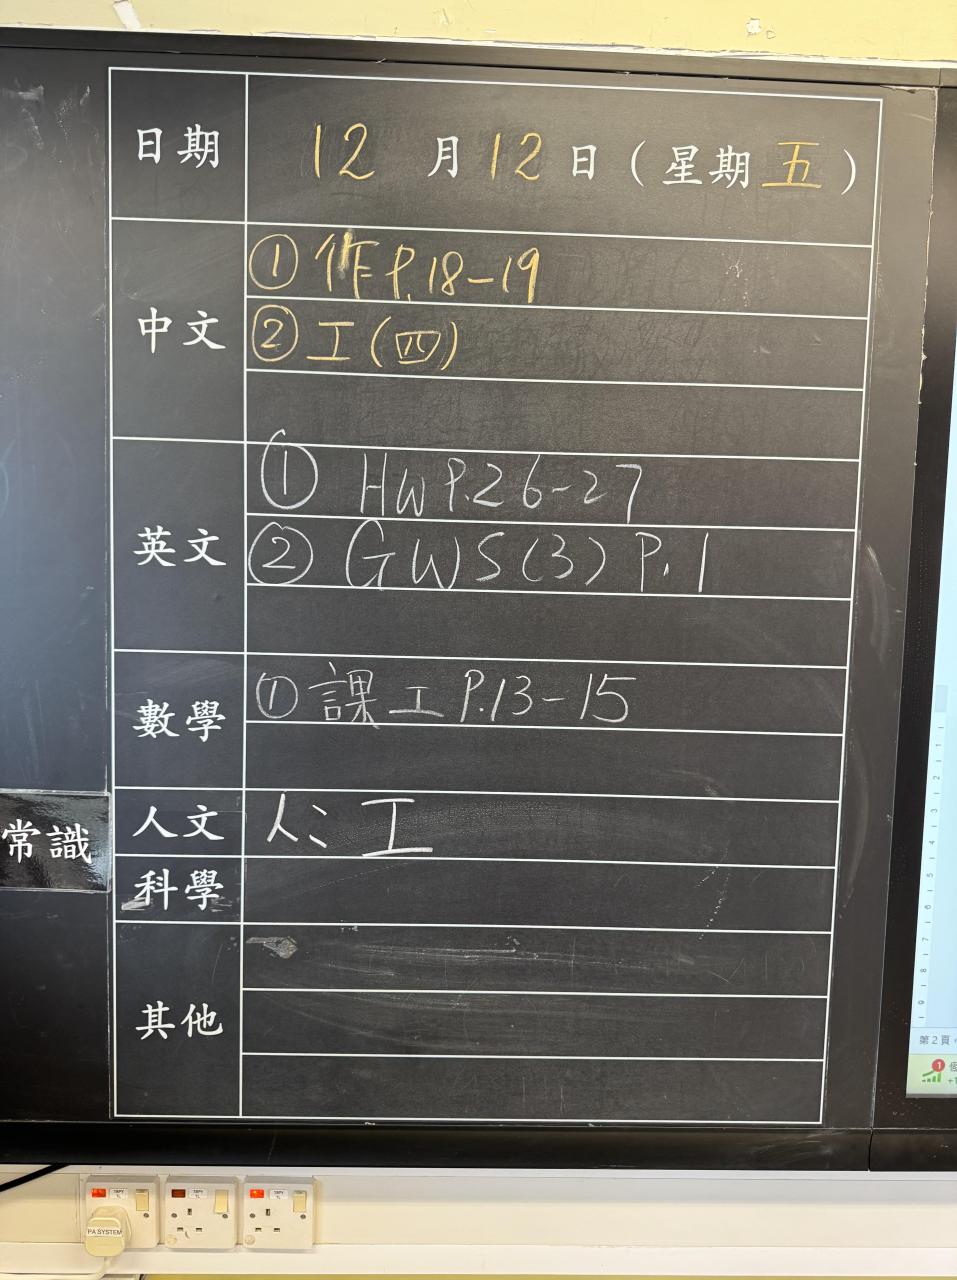 日期 12 月 12 日 ( 星期 五 )
中文
① 作 P.18-19
② 工(四)
英文
① HW P.26-27
② GWS(3) P.1
數學
① 課工 P.13-15
常識
人文 人: 工
科學
其他
第 2 頁,
1
PA SYSTEM